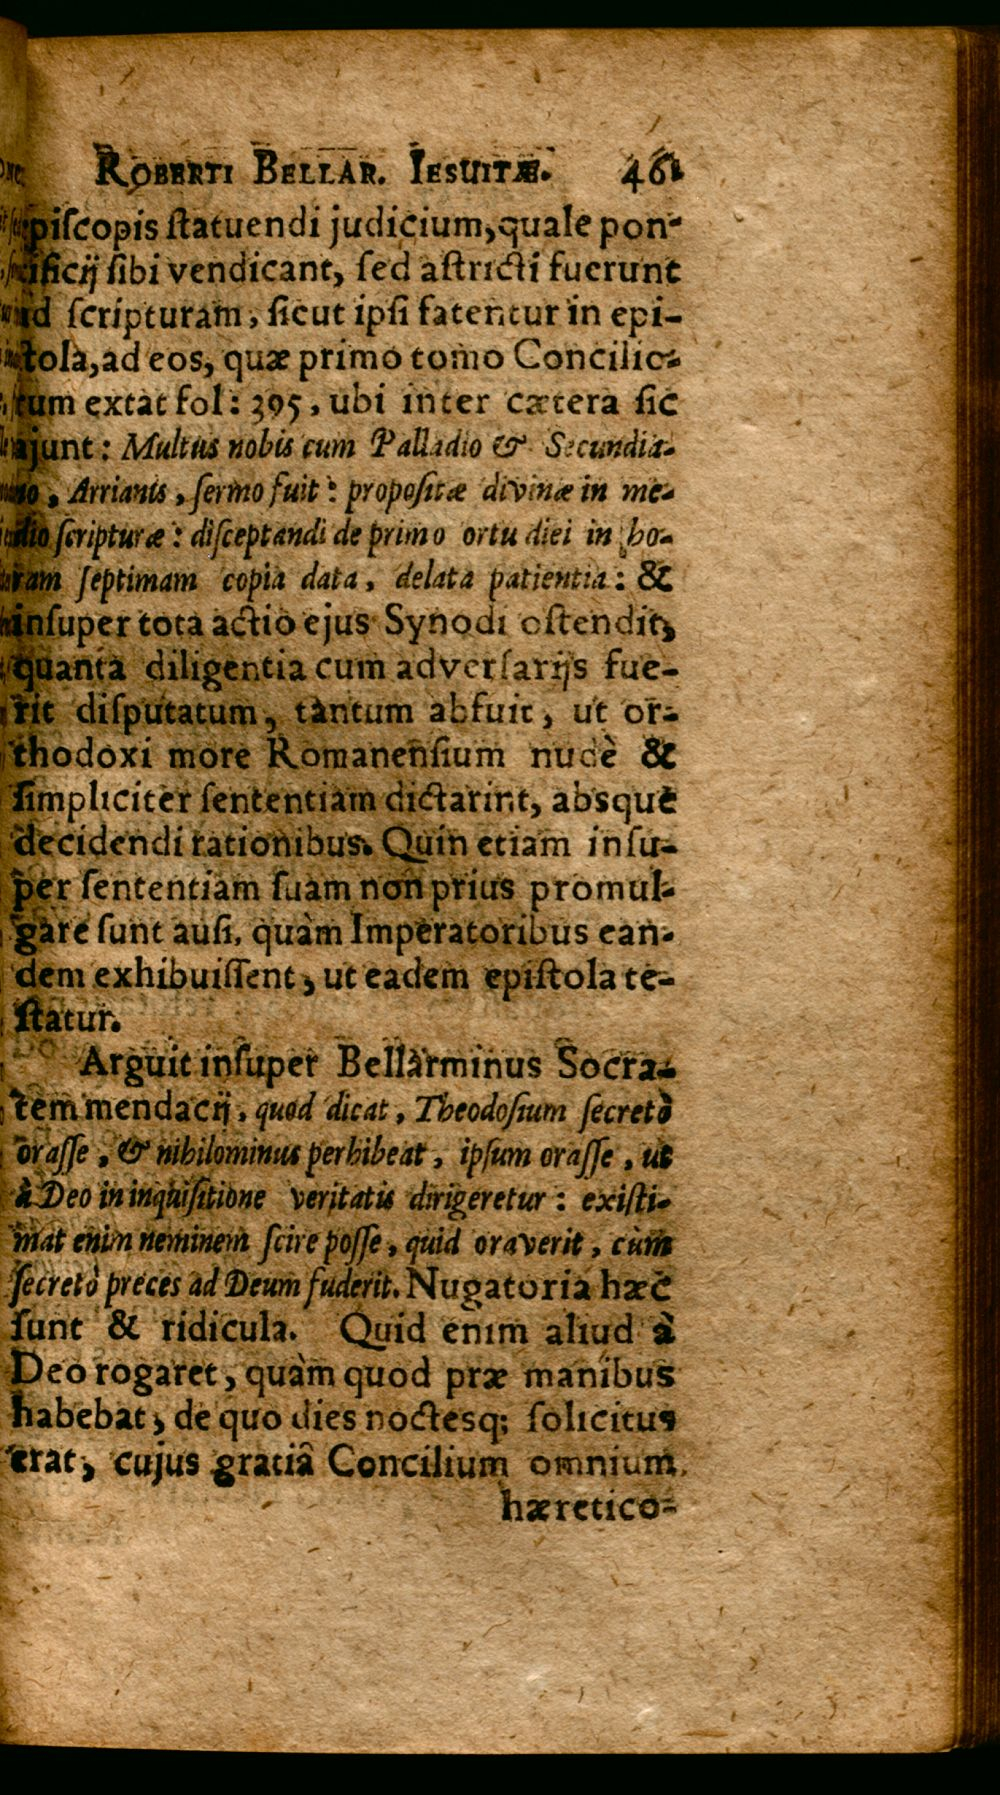 ROBERTI BELLAR. IESUITÆ. 461
episcopis statuendi judicium, quale pon-
tificij sibi vendicant, sed astricti fuerunt
ad scripturam, sicut ipsi fatentur in epi-
stola, ad eos, quæ primo tomo Concilio-
rum extat fol: 395, ubi inter cætera sic
ajunt: Multus nobis cum Palladio & Secundia-
no, Arrianis, sermo fuit: propositæ divinæ in me-
dio scripturæ: disceptandi de primo ortu diei in ho-
ram septimam copia data, delata patientia: &
insuper tota actio ejus Synodi ostendit,
quanta diligentia cum adversarijs fue-
rit disputatum, tantum abfuit, ut or-
thodoxi more Romanensium nudè &
simpliciter sententiam dictarint, absque
decidendi rationibus. Quin etiam insu-
per sententiam suam non prius promul-
gare sunt ausi, quàm Imperatoribus ean-
dem exhibuissent, ut eadem epistola te-
statur.
Arguit insuper Bellarminus Socra-
tem mendacij, quod dicat, Theodosium secretò
orasse, & nihilominus perhibeat, ipsum orasse, ut
à Deo in inquisitione veritatis dirigeretur: existi-
mat enim neminem scire posse, quid oraverit, cùm
secretò preces ad Deum fuderit. Nugatoria hæc
sunt & ridicula. Quid enim aliud à
Deo rogaret, quàm quod præ manibus
habebat, de quo dies noctesq; solicitus
erat, cujus gratiâ Concilium omnium
hæretico-